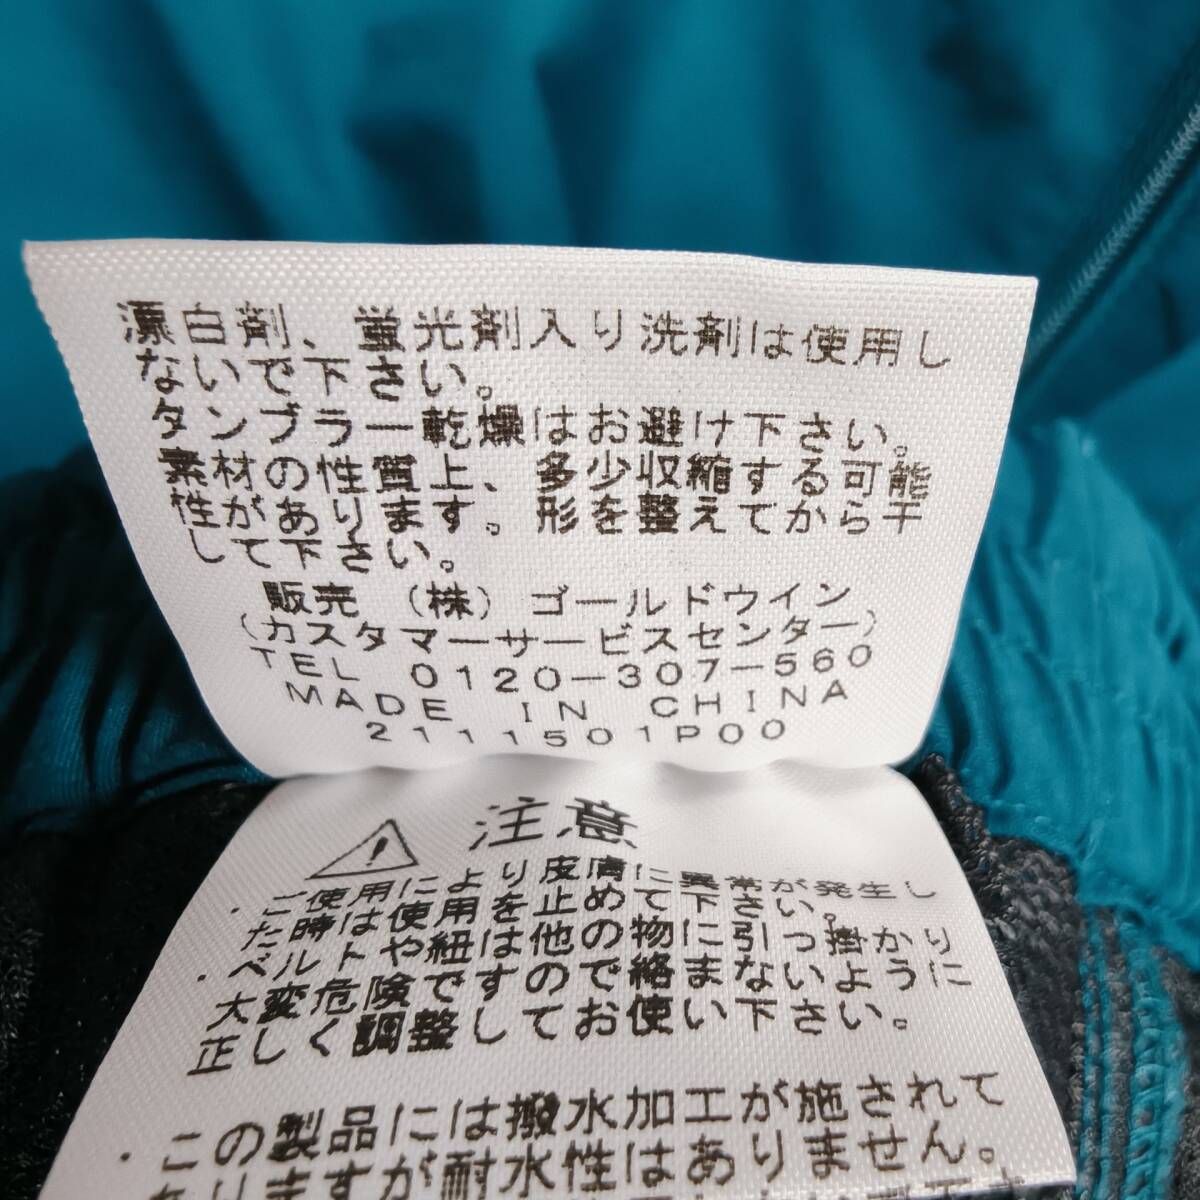 漂白剤、蛍光剤入り洗剤は使用し
ないで下さい。
タンブラー乾燥はお避け下さい。
素材の性質上、多少収縮する可能
性があります。形を整えてから干
して下さい。
販売 (株) ゴールドウイン
(カスタマーサービスセンター)
TEL 0120-307-560
MADE IN CHINA
2111501P00
注意
・ご使用により皮膚に異常が発生し
た時は使用を止めて下さい。
・ベルトや紐は他の物に引っ掛かり
大変危険ですので絡まないように
正しく調整してお使い下さい。
・この製品には撥水加工が施されて
おりますが耐水性はありません。